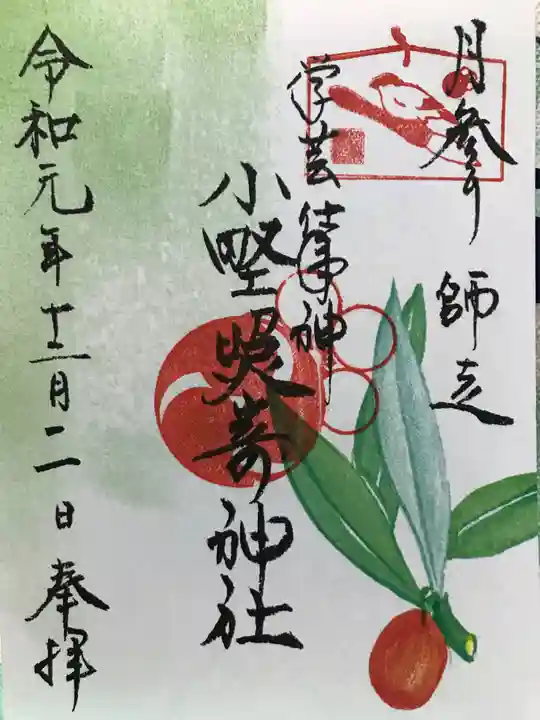 月参り
師走
学芸
神
小野照崎神社
令和元年十二月二日
奉拝